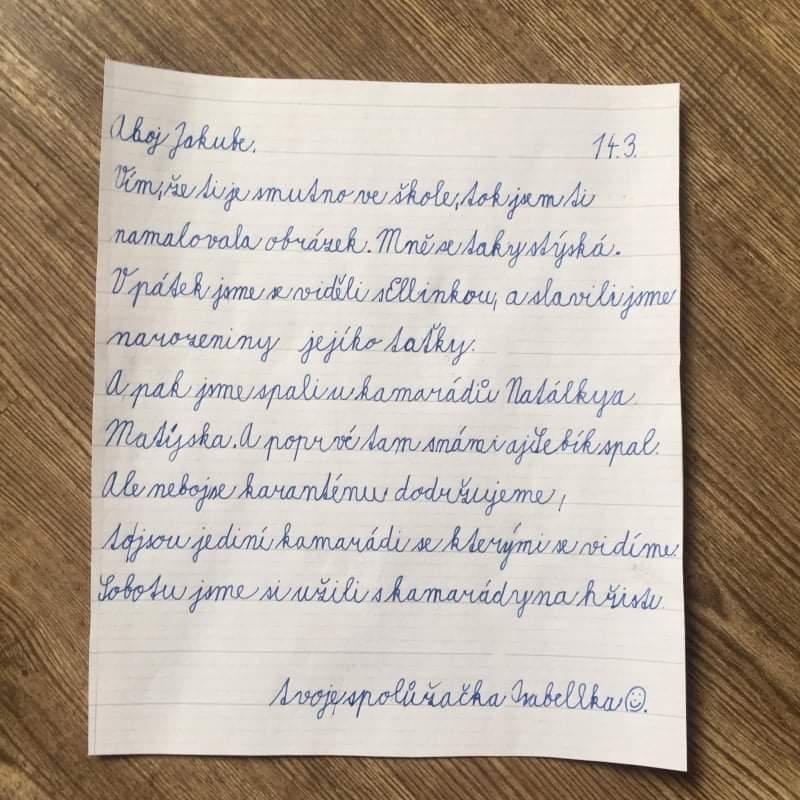 Ahoj Jakube. 14.3.
Vím, že ti je smutno ve škole, tak jsem ti
namalovala obrázek. Mně se taky stýská.
V pátek jsme se viděli s Ellinkou, a slavili jsme
narozeniny jejího taťky.
A pak jsme spali u kamarádů Natálky a
Matýska. A poprvé tam s námi aj Sebík spal.
Ale neboj se karanténu dodržujeme,
to jsou jediní kamarádi se kterými se vidíme.
Sobotu jsme si užili s kamarády na hřisti.
tvoje spolůžačka Isabellka ☺.